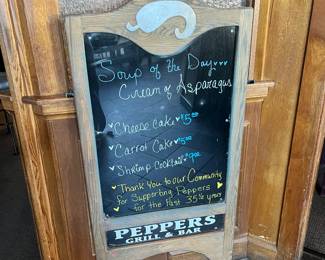 Soup of the Day...
Cream of Asparagus
Cheese Cake $5.00
Carrot Cake $5.00
Shrimp Cocktail $9.00
Thank You to our Community
for Supporting Peppers
for the Past 35½ years
PEPPERS
GRILL & BAR